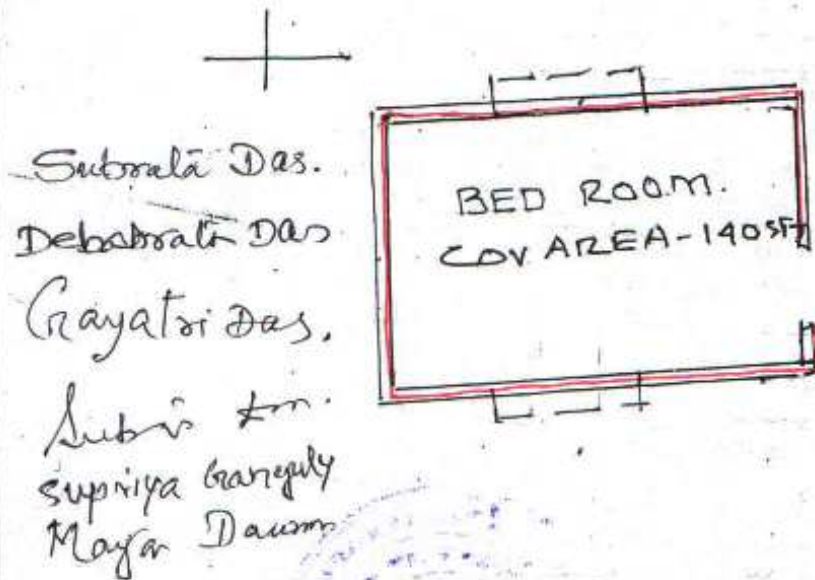 Subrata Das.
Debabrata Das
Gayatri Das.
Supriya Ganguly
Maya
BED ROOM.
COV AREA-140SFT